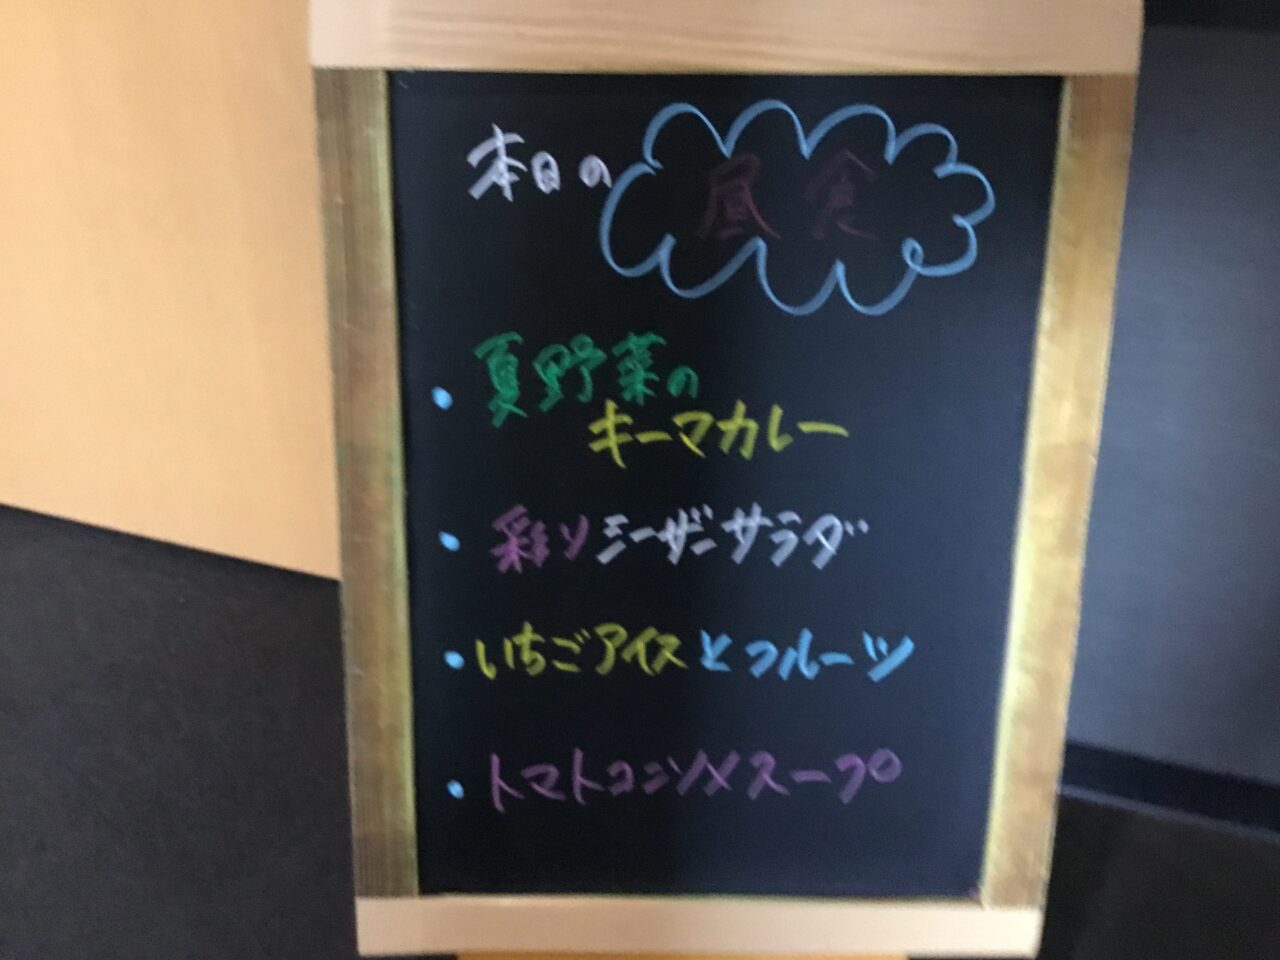 本日の 昼食
・夏野菜の
キーマカレー
・彩りシーザーサラダ
・いちごアイスとフルーツ
・トマトコンソメスープ